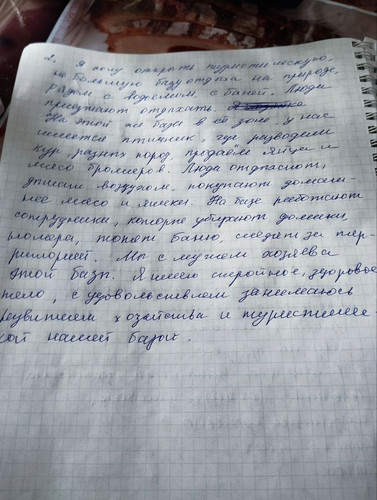 2. Я хочу открыть туристическую,
не большую базу отдыха на природе,
рядом с водоемом, с баней. Люди
приезжают отдыхать.
На этой же базе в её зоне, у нас
имеется птичник, где разводим
кур, разных пород, продаём яйца и
мясо бройлеров. Люди отдыхают,
дышат воздухом, покупают домаш-
нее мясо и яйки. На базе работают
сотрудники, которые убирают домики,
номера, топят баню, следят за тер-
риторией. Мы с мужем хозяева
этой базы. Я имею стройное, здоровое
тело, с удовольствием занимаюсь
развитием хозяйства и туристичес-
кой нашей базы.